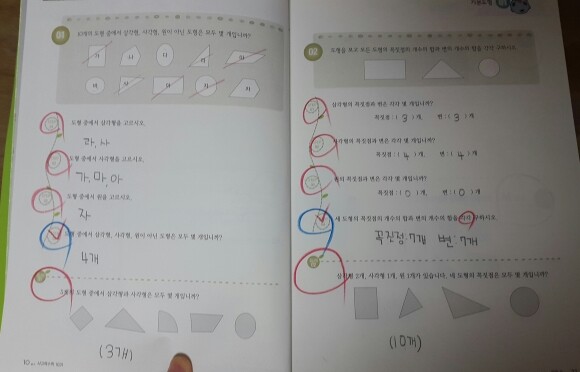 01
10개의 도형 중에서 삼각형, 사각형, 원이 아닌 도형은 모두 몇 개입니까?
가 나 다 라 마
바 사 아 자 차
도형 중에서 삼각형을 고르시오.
라, 사
도형 중에서 사각형을 고르시오.
가, 마, 아
도형 중에서 원을 고르시오.
자
도형 중에서 삼각형, 사각형, 원이 아닌 도형은 모두 몇 개입니까?
4개
도형 중에서 삼각형과 사각형은 모두 몇 개입니까?
(3개)
10
02
도형을 보고 모든 도형의 꼭짓점의 개수의 합과 변의 개수의 합을 각각 구하시오.
삼각형의 꼭짓점과 변은 각각 몇 개입니까?
꼭짓점 : ( 3 )개, 변 : ( 3 )개
사각형의 꼭짓점과 변은 각각 몇 개입니까?
꼭짓점 : ( 4 )개, 변 : ( 4 )개
원의 꼭짓점과 변은 각각 몇 개입니까?
꼭짓점 : ( 0 )개, 변 : ( 0 )개
세 도형의 꼭짓점의 개수의 합과 변의 개수의 합을 각각 구하시오.
꼭진점:7개 변:7개
삼각형 2개, 사각형 1개, 원 1개가 있습니다. 네 도형의 꼭짓점은 모두 몇 개입니까?
(10개)